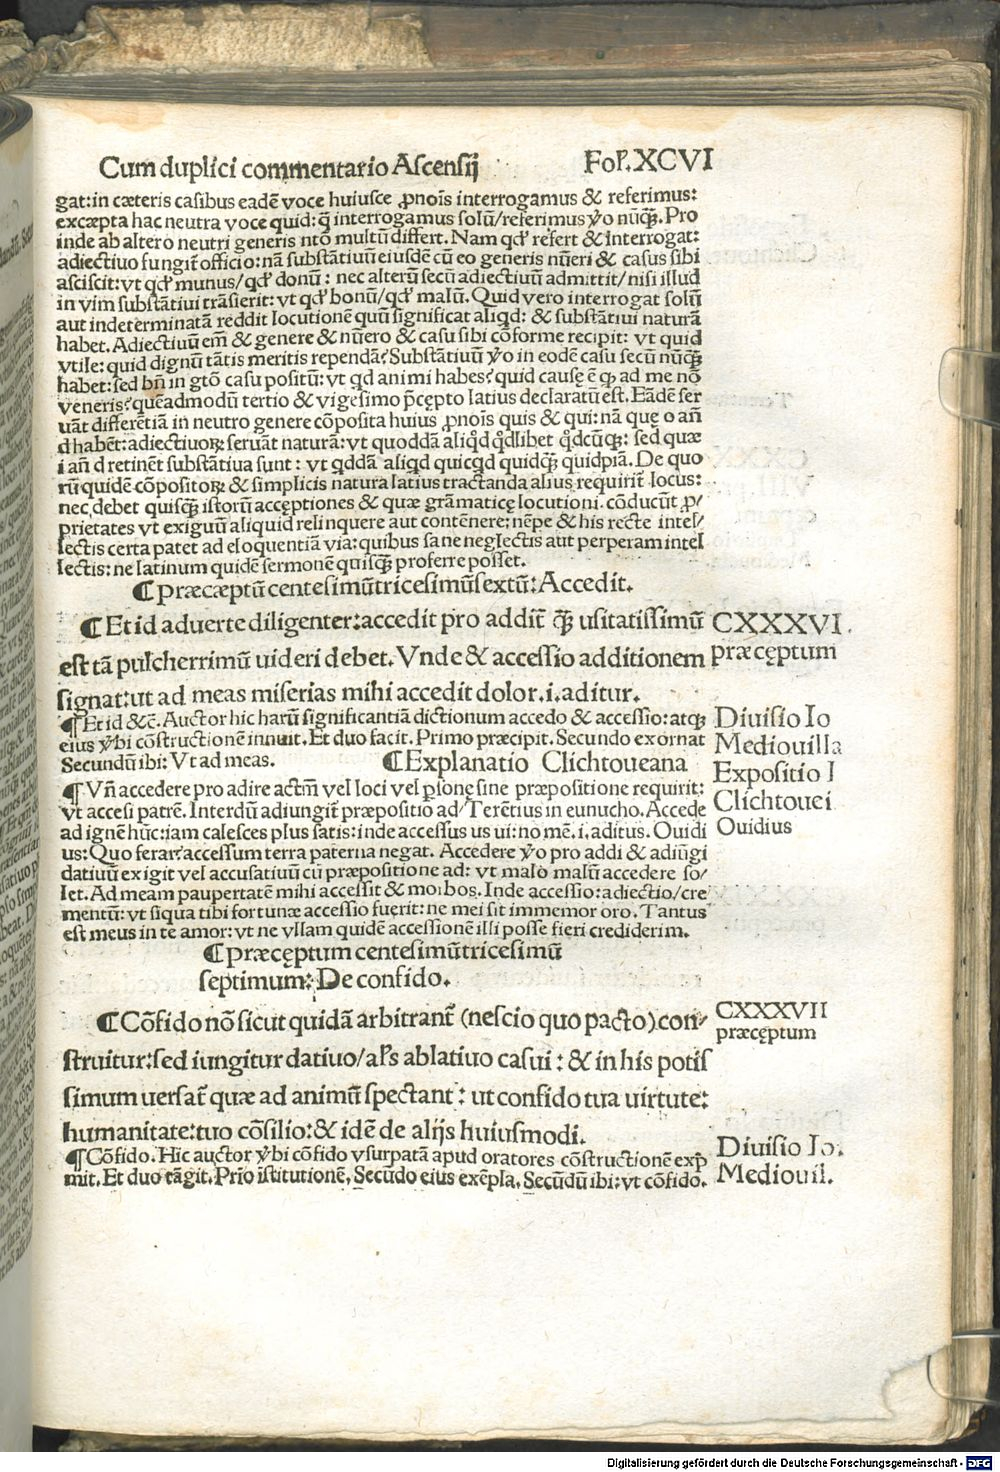 Cum duplici commentario Ascensij Fol. XCVI
gat: in cæteris casibus eadē voce huiusce ꝓnoīs interrogamus & referimus:
excæpta hac neutra voce quid: q̄ interrogamus solū/referimus ꝟo nūq̄ꝫ. Pro
inde ab altero neutri generis nto multū differt. Nam qđ refert & interrogat:
adiectiuo fungit̄ officio: nā substātiuū eiusdē cū eo generis nūeri & casus sibi
asciscit: vt qđ munus/qđ donū: nec alterū secū adiectiuū admittit/nisi illud
in vim substātiui trāsierit: vt qđ bonū/qđ malū. Quid vero interrogat solū
aut indeterminatā reddit locutionē quū significat aliqd: & substātiui naturā
habet. Adiectiuū em̄ & genere & nūero & casu sibi cōforme recipit: vt quid
vtile: quid dignū tātis meritis rependā? Substātiuū ꝟo in eodē casu secū nūq̄ꝫ
habet: sed bn̄ in gtō casu positū: vt qd animi habes? quid causę ē ꝙ ad me nō
veneris? quēadmodū tertio & vigesimo p̄cępto latius declaratū est. Eādē ser
uāt differētiā in neutro genere cōposita huius ꝓnoīs quis & qui: nā quę o añ
d habēt: adiectiuoꝝ seruāt naturā: vt quoddā aliqđ qđlibet qđcūqꝫ: sed quæ
i añ d retinēt substātiua sunt: vt qddā aliqd quicqd quidq̄ꝫ quidpiā. De quo
rū quidē cōpositoꝝ & simplicis natura latius tractanda alius requirit̄ locus:
nec debet quisq̄ꝫ istorū accęptiones & quæ grāmaticę locutioni cōducūt ꝓ/
prietates vt exiguū aliquid relinquere aut contēnere; nēpe & his recte intel/
lectis certa patet ad eloquentiā via: quibus sane neglectis aut perperam intel
lectis: ne latinum quidē sermonē quisq̄ꝫ proferre posset.
¶ Præcæptū centesimūtricesimūsextū: Accedit.
¶ Et id aduerte diligenter: accedit pro addit̄ q̄ꝫ usitatissimū CXXXVI.
est tā pulcherrimū uideri debet. Vnde & accessio additionem præcęptum
signat: ut ad meas miserias mihi accedit dolor. i. aditur.
¶ Et id &c̄. Auctor hic harū significantiā dictionum accedo & accessio: atqꝫ Diuisio Io
eius ꝟbi cōstructionē innuit. Et duo facit. Primo præcipit. Secundo exornat Mediouilla
Secundū ibi: Vt ad meas. ¶ Explanatio Clichtoueana Expositio I
¶ Vñ accedere pro adire actm̄ vel loci vel ꝑsonę sine præpositione requirit: Clichtouei
vt accesi patrē. Interdū adiungit̄ præpositio ad/Terētius in eunucho. Accede
ad ignē hūc: iam calesces plus satis: inde accessus us ui: no mē. i. aditus. Ouidi Ouidius
us: Quo ferar? accessum terra paterna negat. Accedere ꝟo pro addi & adiūgi
datiuū exigit vel accusatiuū cū præpositione ad: vt malo malū accedere so/
let. Ad meam paupertatē mihi accessit & morbos. Inde accessio: adiectio/cre
mentū: vt siqua tibi fortunæ accessio fuerit: ne mei sit immemor oro. Tantus
est meus in te amor: vt ne vllam quidē accessionē illi posse fieri crediderim.
¶ Præcęptum centesimūtricesimū
septimum: De confido.
¶ Cōfido nō sicut quidā arbitrant̄ (nescio quo pacto) con/ CXXXVII
struitur: sed iungitur datiuo/al's ablatiuo casui: & in his potis præcęptum
simum uersat̄ quæ ad animū spectant: ut confido tua uirtute:
humanitate: tuo cōsilio: & idē de alijs huiusmodi.
¶ Cōfido. Hic auctor ꝟbi cōfido vsurpatā apud oratores cōstructionē exp̄ Diuisio Io.
mit. Et duo tāgit. Prīo īstitutionē, Secūdo eius exēpla, Secūdū ibi: vt cōfido. Mediouil.
Digitalisierung gefördert durch die Deutsche Forschungsgemeinschaft - DFG